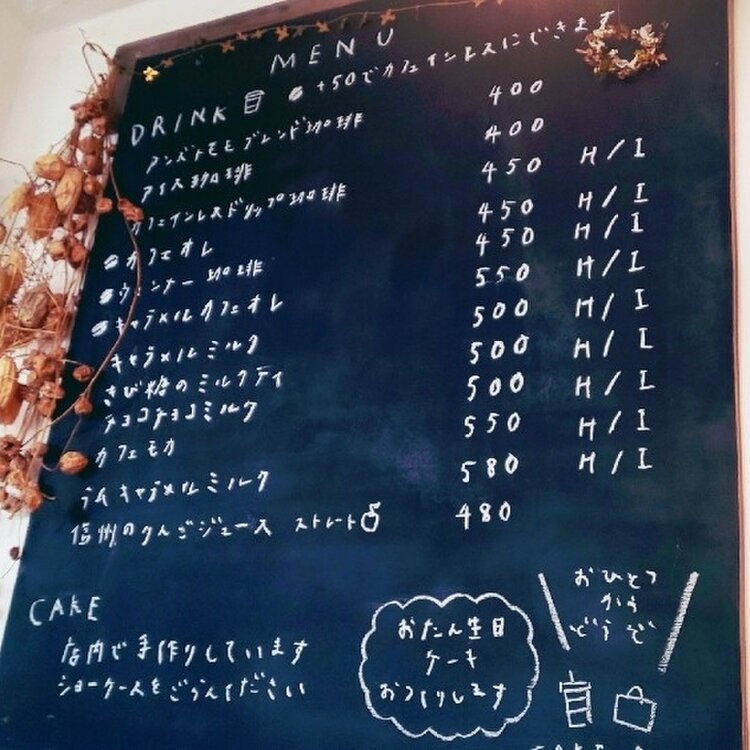 MENU
+50でカフェインレスにできます
DRINK
アンバトモモブレンド珈琲 400
アイス珈琲 400
カフェインレスドリップ珈琲 450 H/I
カフェオレ 450 H/I
ウィンナー珈琲 450 H/I
キャラメルカフェオレ 550 H/I
キャラメルミルク 500 H/I
きび糖のミルクティ 500 H/I
チョコチョコミルク 500 H/I
カフェモカ 550 H/I
ラムキャラメルミルク 580 H/I
信州のりんごジュース ストレート 480
CAKE
店内で手作りしています
ショーケースをごらんください
おたん生日
ケーキ
おつくりします
おひとつ
から
どうぞ